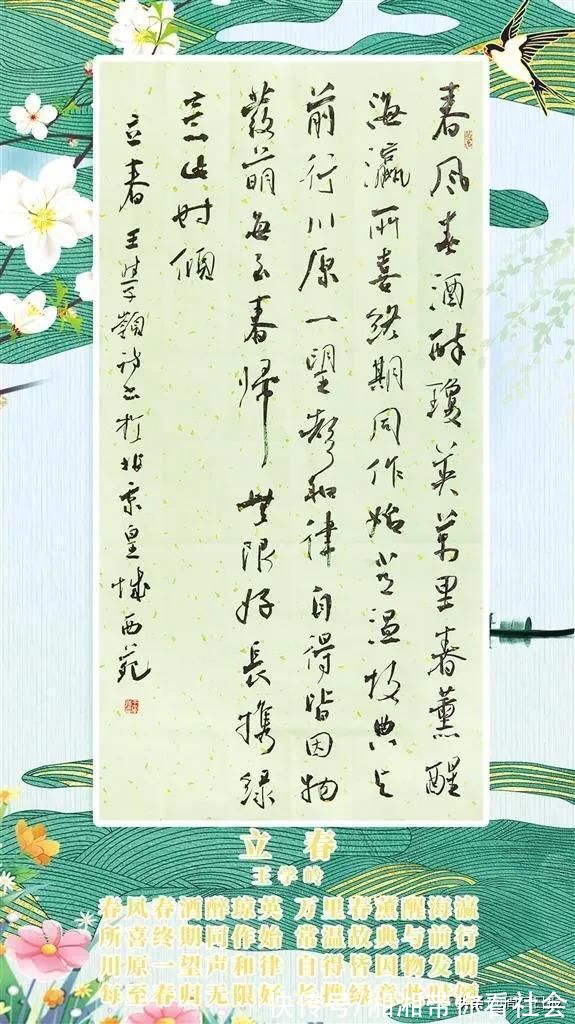 春風春酒醉瓊英萬里春薰醒
海瀛所喜終期同作始常溫故典与
前行川原一望聲和律自得皆因物
發萌每至春歸無限好長攜綠
意此时傾
立春 王學嶺詩書於北京皇城西苑
立春
王学岭
春风春酒醉琼英 万里春薰醒海瀛
所喜终期同作始 常温故典与前行
川原一望声和律 自得皆因物发萌
每至春归无限好 长携绿意此时倾
快传号/湘湘带你看社会